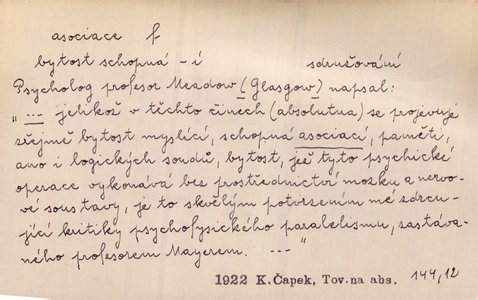 asociace f
bytost schopná -í sdružování
Psycholog profesor Meadow (Glasgow) napsal:
„ --- jelikož v těchto činech (absolutna) se projevuje
zřejmě bytost myslící, schopná asociací, paměti,
ano i logických soudů, bytost, jež tyto psychické
operace vykonává bez prostřednictví mozku a nervo-
vé soustavy, je to skvělým potvrzením mé zdrcu-
jící kritiky psychofysického paralelismu, zastáva-
ného profesorem Mayerem. --- "
1922 K.Čapek, Tov.na abs. 144,12